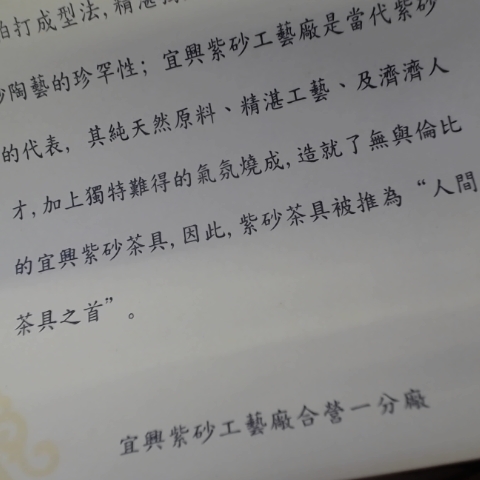 拍打成型法,精湛
陶藝的珍罕性；宜興紫砂工藝廠是當代紫砂
的代表，其純天然原料、精湛工藝、及濟濟人
才,加上獨特難得的氣氛燒成,造就了無與倫比
的宜興紫砂茶具,因此,紫砂茶具被推為“人間
茶具之首”。
宜興紫砂工藝廠合營一分廠